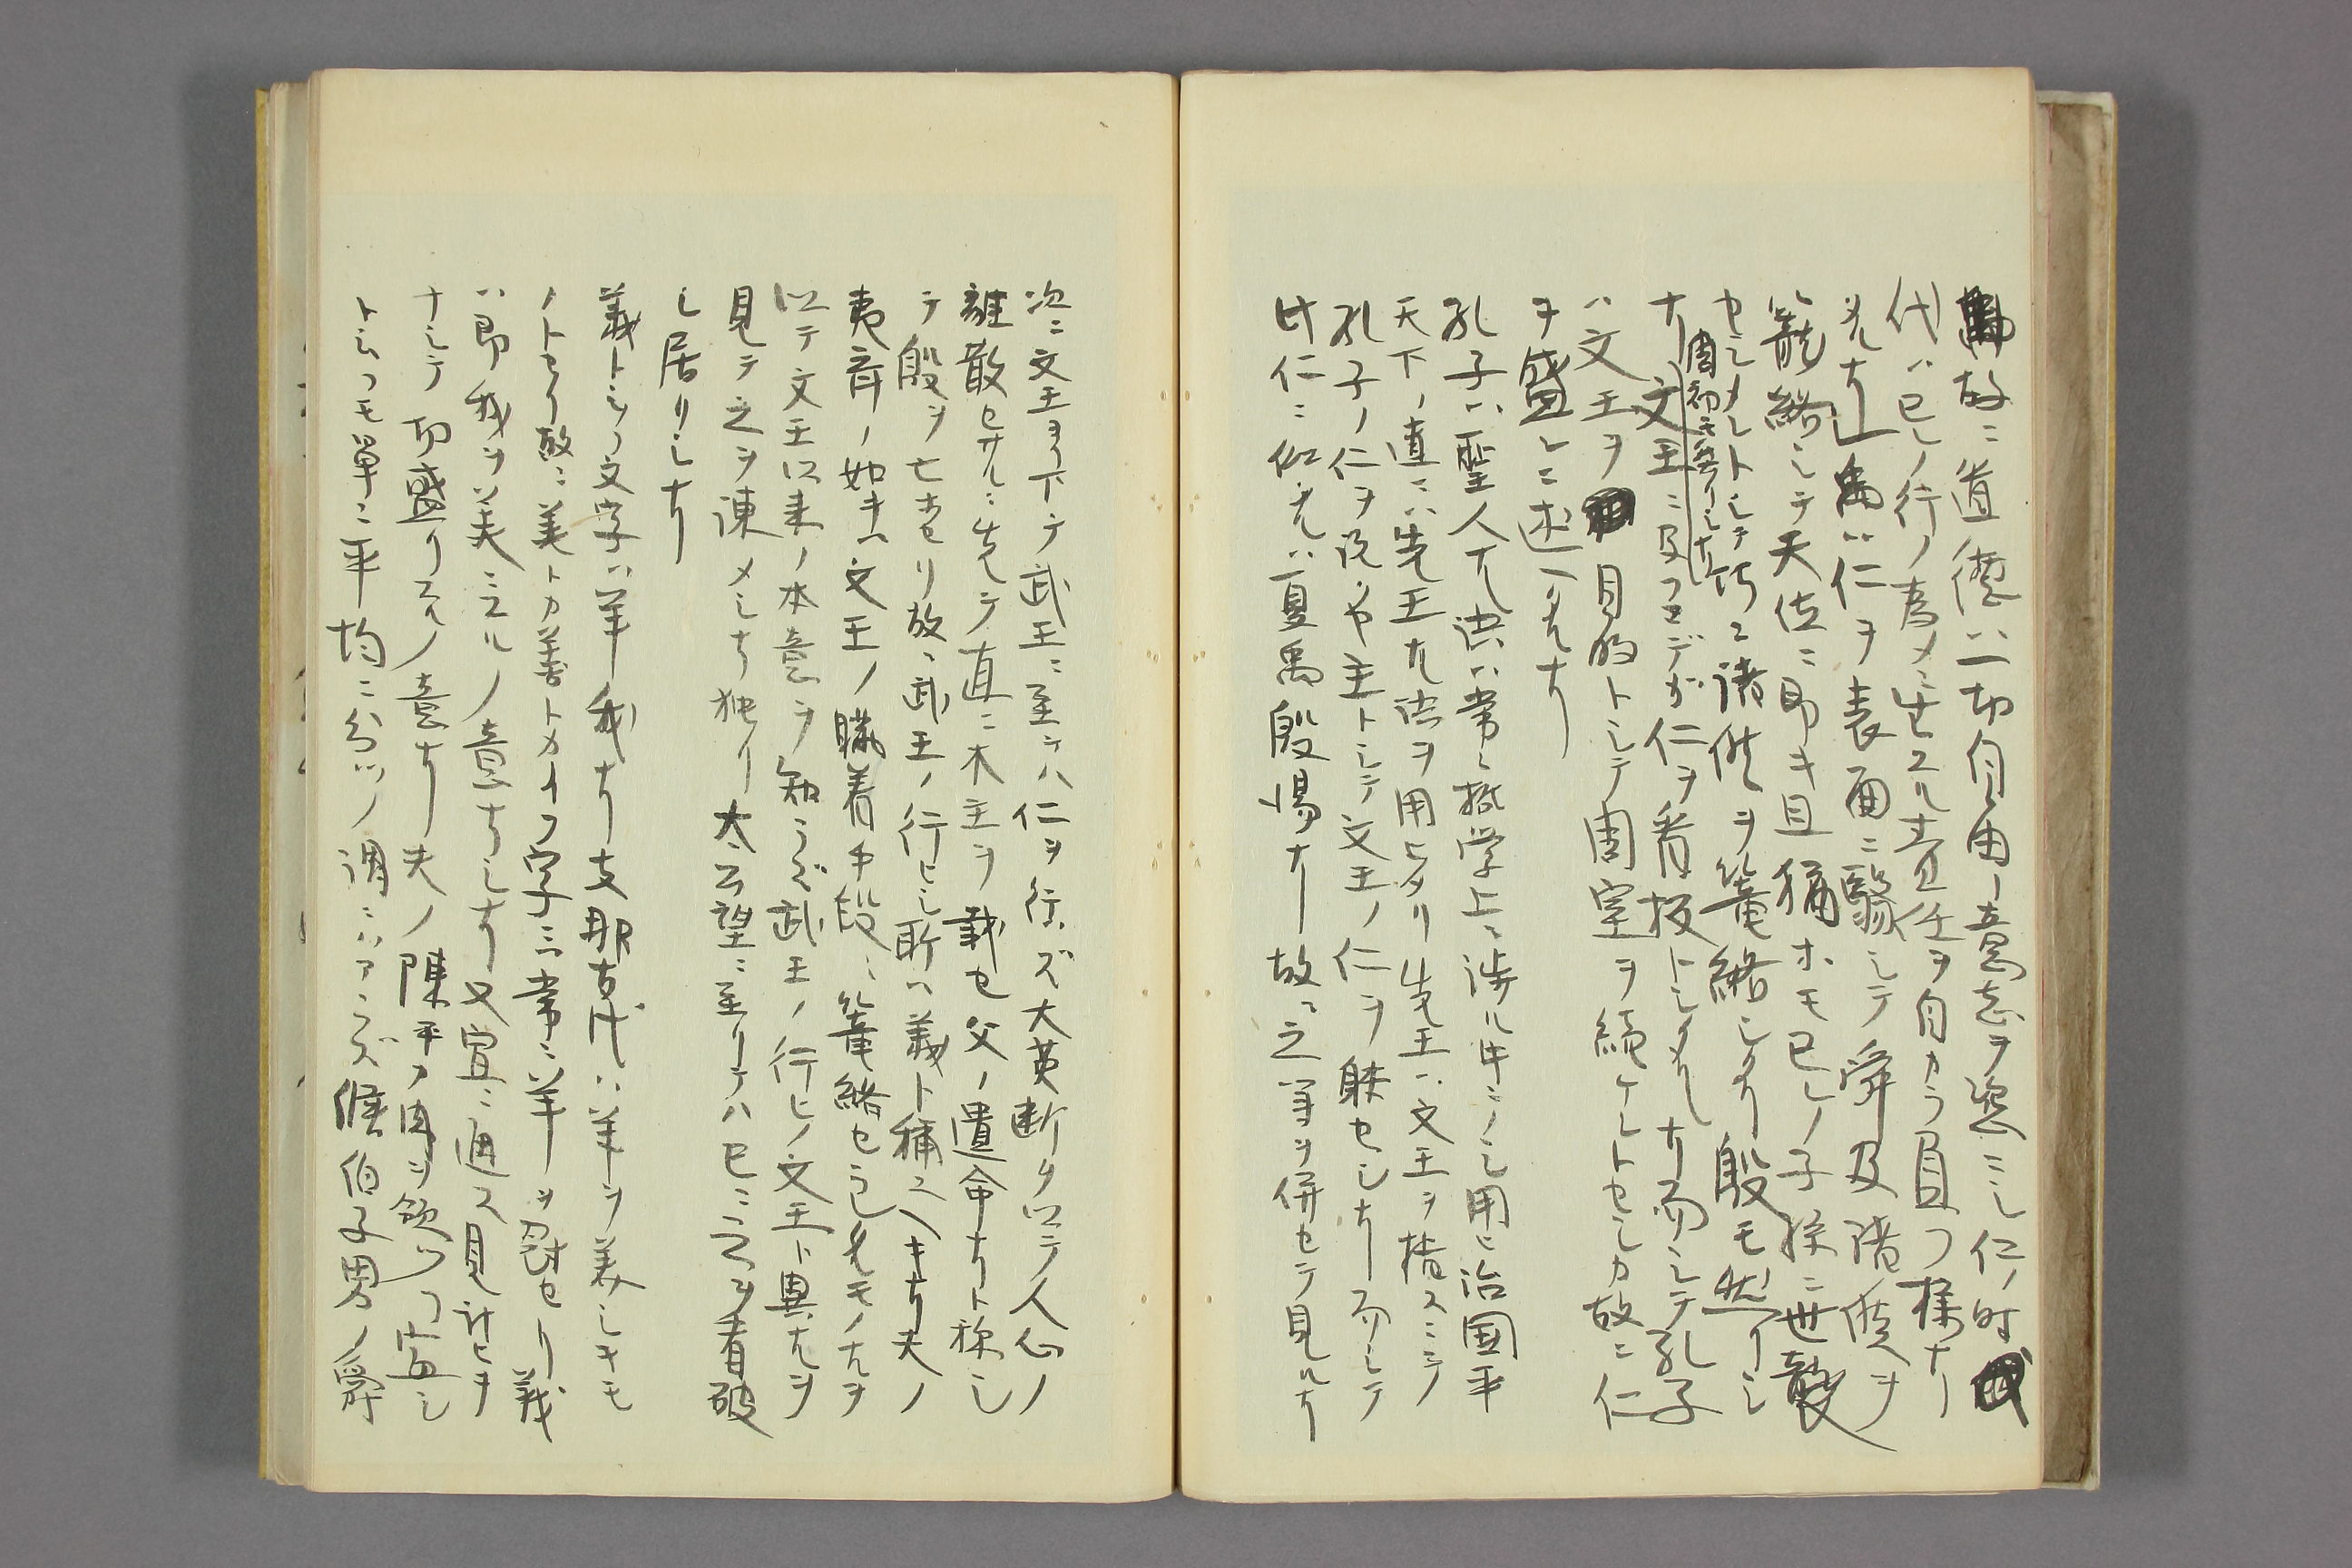 故ニ道徳ハ一切自由ノ意志ヲ恣ニシ仁ノ時
代ハ已レノ行ノ為メニ生スル責任ヲ自カラ負フ様ナリ
禹ハ仁ヲ表面ニ翳シテ舜及諸侯ヲ
籠絡シテ天位ニ即キ且猶ホモ已レノ子孫ニ世襲
セシメントシテ巧ニ諸侯ヲ篭絡シタリ殷モ然リシ
周初モ然リシナリ
ナリ文王ニ及フマデガ仁ヲ看板トシタルナリ而シテ孔子
ハ文王ヲ目的トシテ周室ヲ続ケントセシカ故ニ仁
ヲ盛ンニ述ヘタルナリ
孔子ハ聖人ナル語ハ常ニ哲学上ニ渉ル中ニノミ用ヒ治国平
天下ノ道ニハ先王ナル語ヲ用ヒタリ先王ハ文王ヲ指スニテ
孔子ノ仁ヲ説クヤ主トシテ文王ノ仁ヲ躰セシナリ而シテ
此仁ニ似タルハ夏禹殷湯ナリ故ニ之等ヲ併セテ見ルナリ
次ニ文王ヨリ下テ武王ニ至テハ仁ヲ行ハズ大英断ヲ以テ人心ノ
離散セサルニ先テ直ニ木主ヲ載セ父ノ遺命ナリト称シ
テ殷ヲ亡ホセリ故ニ武王ノ行ヒシ所ハ義ト称スヘキナリ夫ノ
夷斉ノ如キハ文王ノ瞞着手段ニ篭絡セラレシモノナルヲ
以テ文王以来ノ本意ヲ知ラズ武王ノ行ヒノ文王ト異ナルヲ
見テ之ヲ諫メシナリ独リ太公望ニ至リテハ已ニ之ヲ看破
シ居リシナリ
義トシフ文字ハ羊我ナリ支那古代ハ羊ヲ美シキモ
ノトセリ故ニ美トカ善トカイフ字ニ常ニ羊ヲ冠セリ義
ハ即我ヲ美ニスルノ意ナリシナリ又宜ニ通ス見計ヒヲ
ナシテ切盛リスルノ意ナリ夫ノ陳平ノ肉ヲ頒ツ﹁宜シ
トシフモ単ニ平均ニ分ツノ謂ニハアラズ候伯子男ノ爵